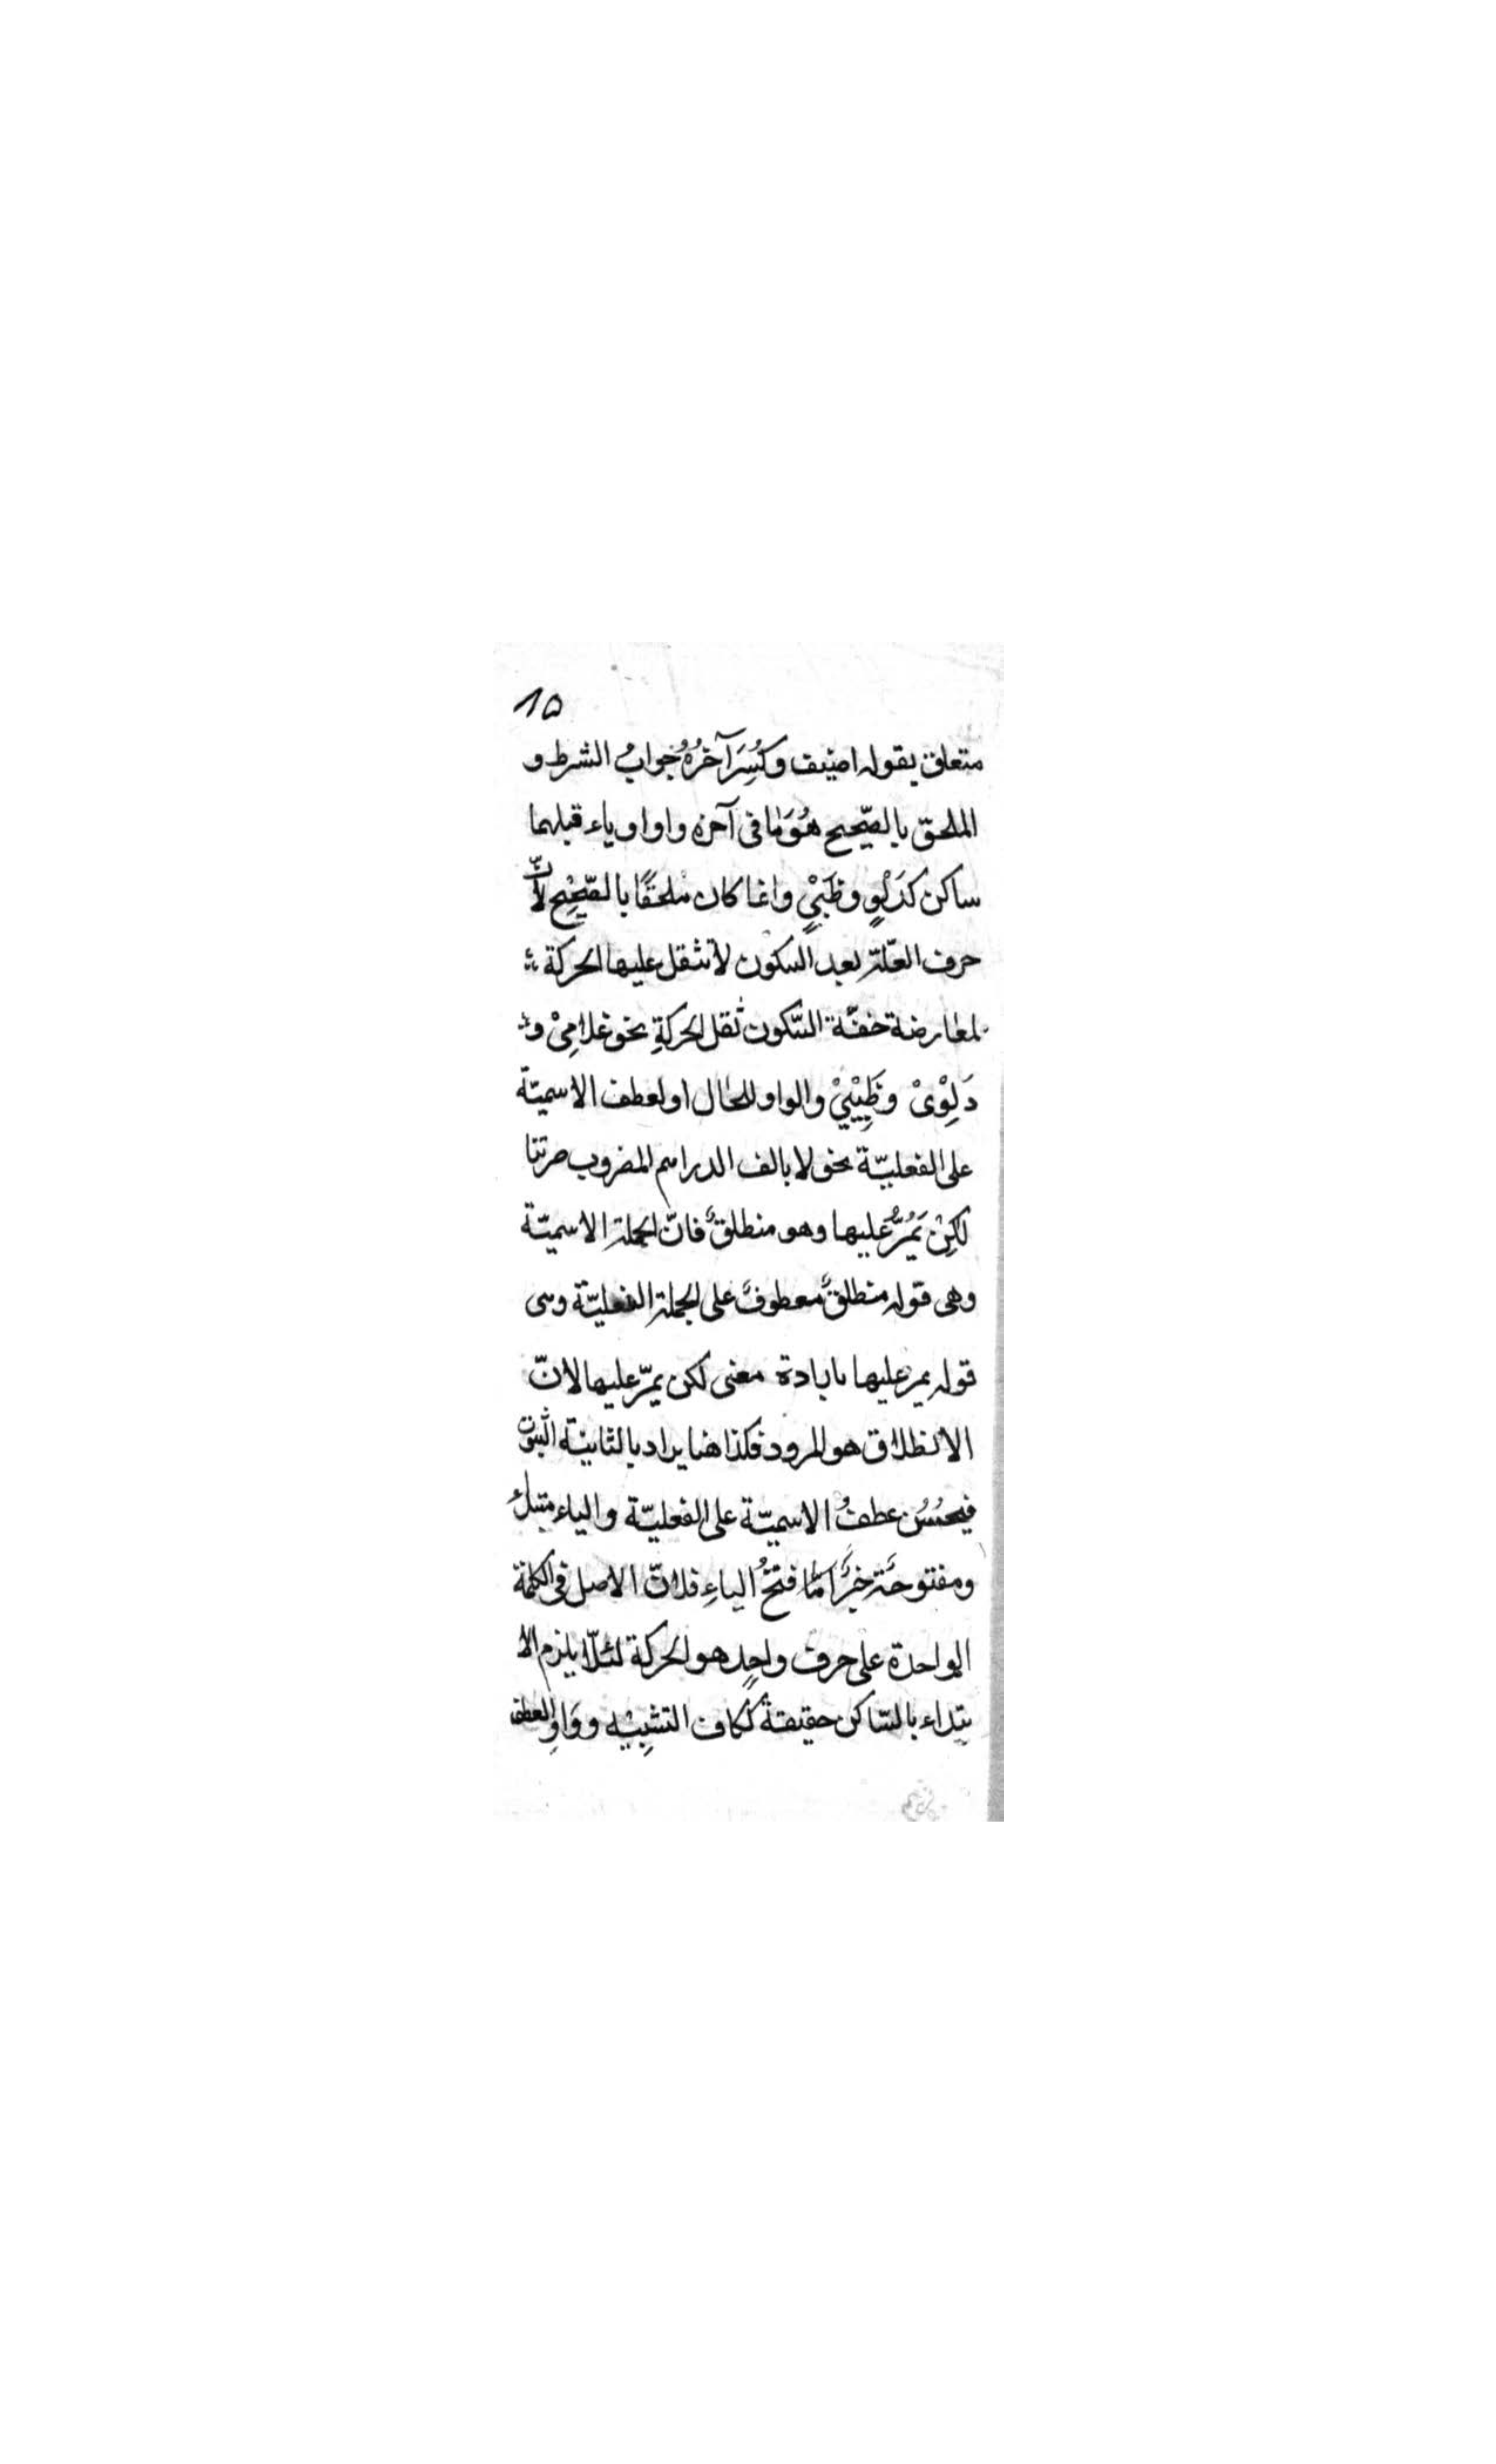 ١٥
متعلق بقوله اضيف وكُسِرَ آخرُهُ جوابُ الشرط و
الملحق بالصّحيح هُوَ مٰا فى آخره واو او ياء قبلهما
ساكن كدَلْوٍ وظَبْىٍ وانما كان ملحقًا بالصّحِيْح لأنّ
حرف العّلة بعد السكون لا تثقل عليها الحركة
لمعٰارضة خفّة السّكون ثقل الحركةِ نحو غلامِىْ و
دَلْوِىْ وظَبْيِىْ والواو للحٰال او لعطف الاسميّة
على الفعليّة نحو لا يالف الدراهم المضروب صرتنا
لٰكِنْ يَمُرُّ عليها وهو منطلقٌ فانّ الجملة الاسميّة
وهى قوله منطلقٌ معطوفٌ على الجملة الفعليّة وهى
قوله يمر عليها معنى لكن يمرّ عليها لانّ
الانطلاق هو المرور فكذا هنا يراد بالثانية الثبوت
فيحسُسُن عطفُ الاسميّة على الفعليّة والياء مبتدأ
ومفتوحَة خبرٌ امّا فتحُ الياءِ فلانّ الاصل فى الكلمة
الواحدة على حرف واحدٍ هو الحركة لئلّا يلزم الا
بتداء بالسّاكن حقيقةً ككاف التشبِيْه ووَاوِ العطف